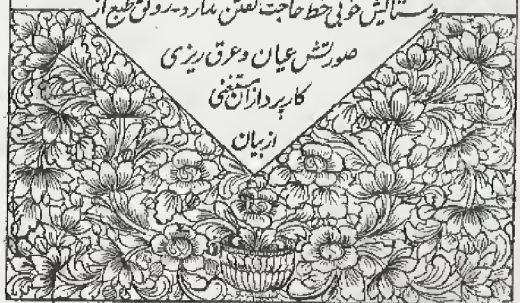 وستایش خوبی خط حاجت گفتن ندارد۔ رونق طبع از
صورتش عیان و عرق ریزی
کارپردازان مستغنی
از بیان